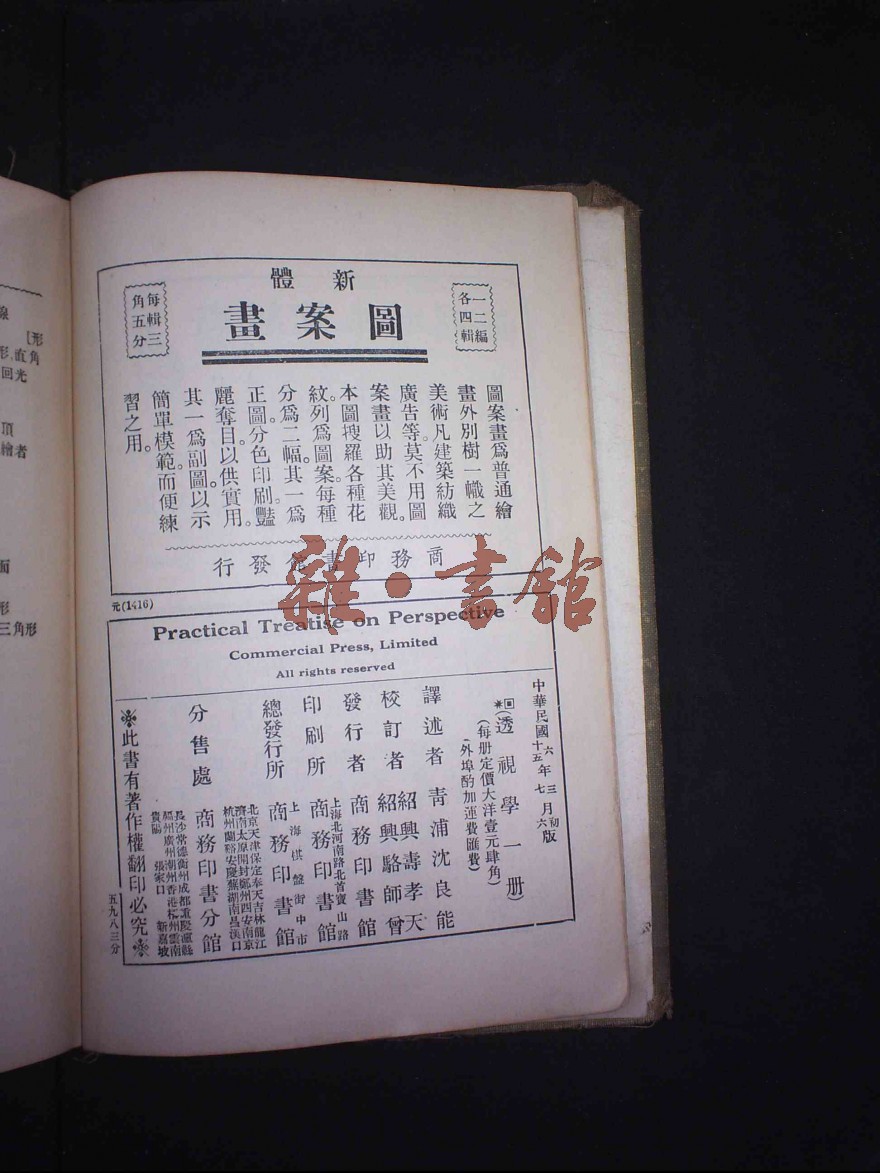 新體
圖案畫
一二編
各四輯
每輯三
角五分
圖案畫爲普通繪
畫外別樹一幟之
美術凡建築紡織
廣告等。莫不用圖
案畫以助其美觀。
本圖搜羅各種花
紋。列爲圖案。每種
分爲二幅。其一爲
正圖。分色印刷。豔
麗奪目。以供實用。
其一爲副圖。以示
簡單模範。而便練
習之用。
商務印書館發行
雜·書館
元(1416)
Practical Treatise on Perspective
Commercial Press, Limited
All rights reserved
中華民國六年三月初版
十五 七 六
透視學一册
(每册定價大洋壹元肆角)
(外埠酌加運費匯費)
譯述者 青浦沈良能
校訂者 紹興壽孝天
紹興駱師曾
發行者 商務印書館
印刷所 上海北河南路北首寶山路
商務印書館
總發行所 上海棋盤街中市
商務印書館
分售處
北京天津保定奉天吉林龍江
濟南太原開封鄭州西安南京
杭州蘭谿安慶蕪湖南昌漢口
商務印書分館
長沙常德衡州成都重慶瀘縣
福州廣州潮州香港梧州雲南
貴陽 張家口 新嘉坡
此書有著作權翻印必究
五九八三分
線
[形
形,直角
回光
頂
繪者
面
形
三角形